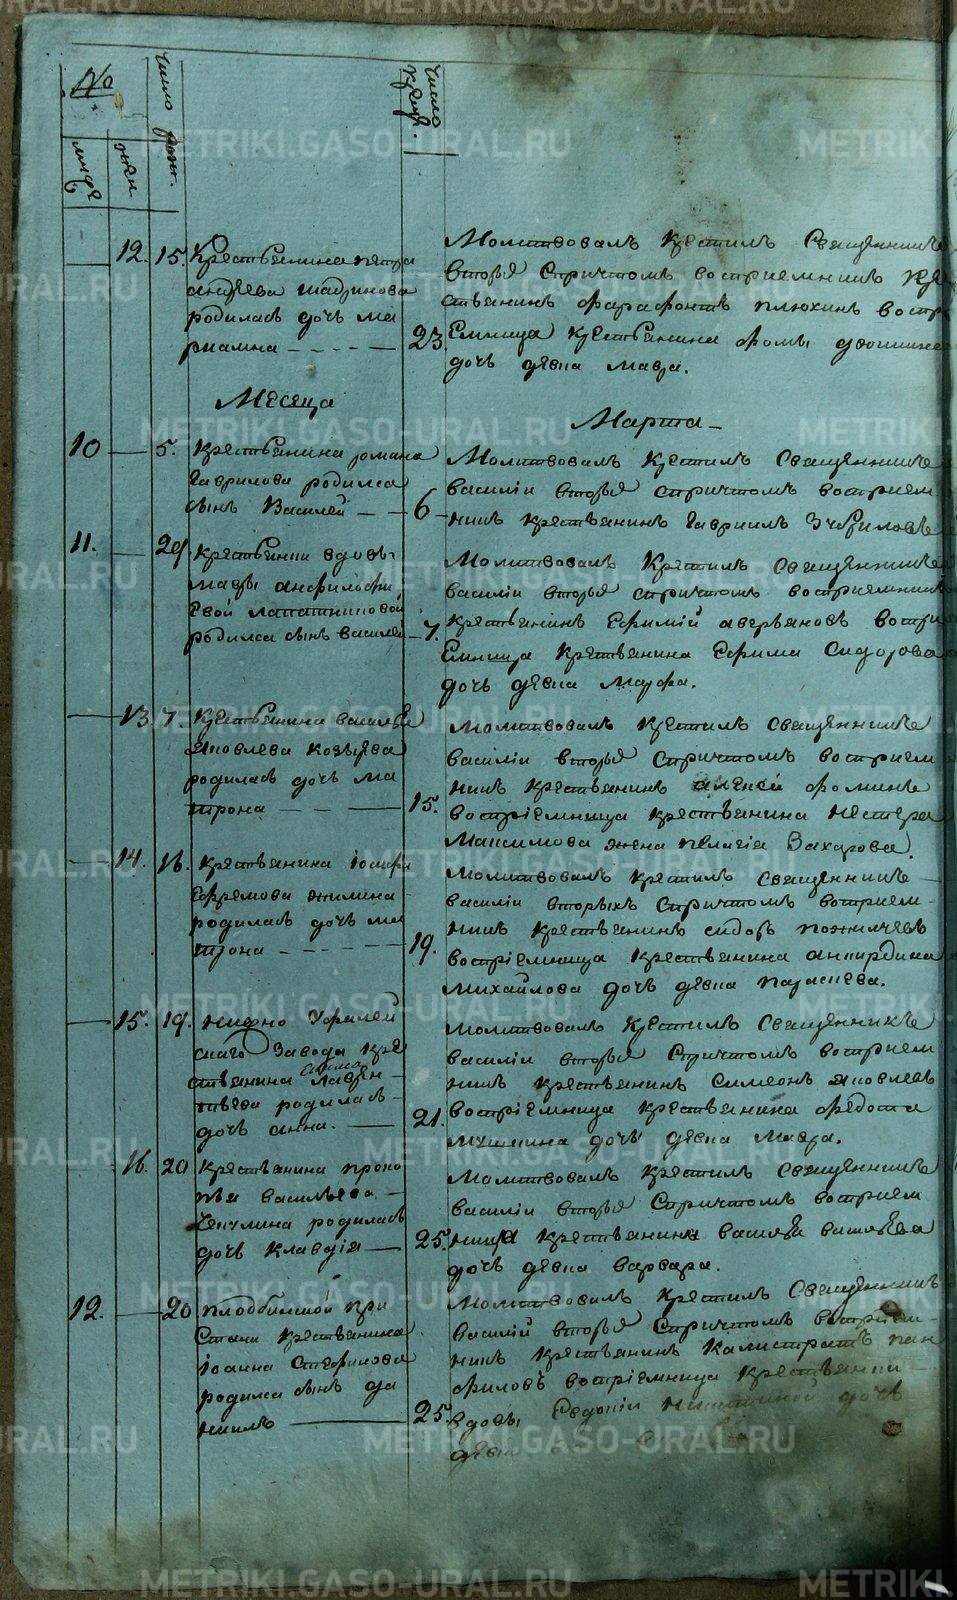 №
мужs
жен
число рожд.
число крещ.
12. 15. Крестьянина петра
андреева шадринова
родилась дочь ма
риамна
23.
Молитвовалъ крестилъ Священникъ
вторыя Спричтомъ восприемникъ кре
стьянинъ фарафонтъ плюхинъ востр
Емница крестьянина фомы
дочь девка мавра.
Месяца
Марта
10 5. крестьянина романа
Гаврилова родился
сынъ Василей
6
Молитвовалъ Крестилъ Священникъ
василiи вторыя спричтомъ востреем
никъ крестьянинъ Гаврилъ
11. 29. крестьянки вдовы
мавры анфилофи
Евой лапатниковой
родился сынъ василей
7.
Молитвовалъ Крестилъ Священникъ
василiи вторыя спричтомъ востреемникъ
крестьянинъ Ефимiй аверьяновъ востри
Емница Крестьянина Ефима Сидорова
дочь девка марфа.
13. 7. Крестьянина василья
яковлева козырева
родилась дочь ма
трона
15.
молитвовалъ крестилъ Священникъ
василiи вторыя Спричтомъ востреем
никъ крестьянинъ алексей фоминъ
востреемница крестьянина нестера
Максимова жена пелагiя Захарова.
14. 16. крестьянина iосифа
Ефремова жилина
родилась дочь ма
трона
19.
Молитвовалъ крестилъ Священникъ
василiи вторыхъ Спричтомъ востреем
никъ крестьянинъ сидоръ
востреемница крестьянина
михайлова дочь девка параскева.
15. 19. нижно Уфалей
скаго завода кре
стьянина Лаврен
тьева родилась
дочь анна.
21.
молитвовалъ крестилъ Священникъ
василiи вторыя Спричтомъ востреем
никъ крестьянинъ симеонъ яковлевъ
востреемница крестьянина федота
дочь девка мавра.
16. 20 крестьянина проко
пья васильева
родилась
дочь клавдiя
25.
Молитвовалъ Крестилъ Священникъ
василiи вторыя Спричтомъ востреем
ница крестьянина василья васильева
дочь девка варвара.
12. 20 при
стани крестьянина
iоанна Стефанова
родился сынъ да
нiилъ
25.
Молитвовалъ Крестилъ Священникъ
василiй вторыя Спричтомъ востреем
никъ крестьянинъ Калистратъ пан
филовъ востреемница крестьянки
вдовы Евдокiи никитиной дочь
девка
METRIKI.GASO-URAL.RU